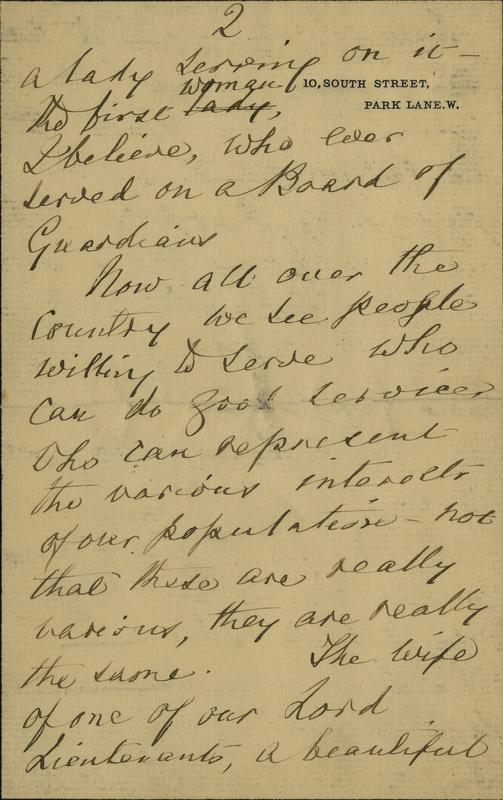 2
a lady serving on it -
woman
10, SOUTH STREET,
PARK LANE. W.
the first lady,
I believe, who ever
served on a Board of
Guardians
Now all over the
country we see people
willing to serve who
can do good service,
who can represent
the various interests
of our population - not
that these are really
various, they are really
the same. The wife
of one of our Lord
Lieutenants, a beautiful